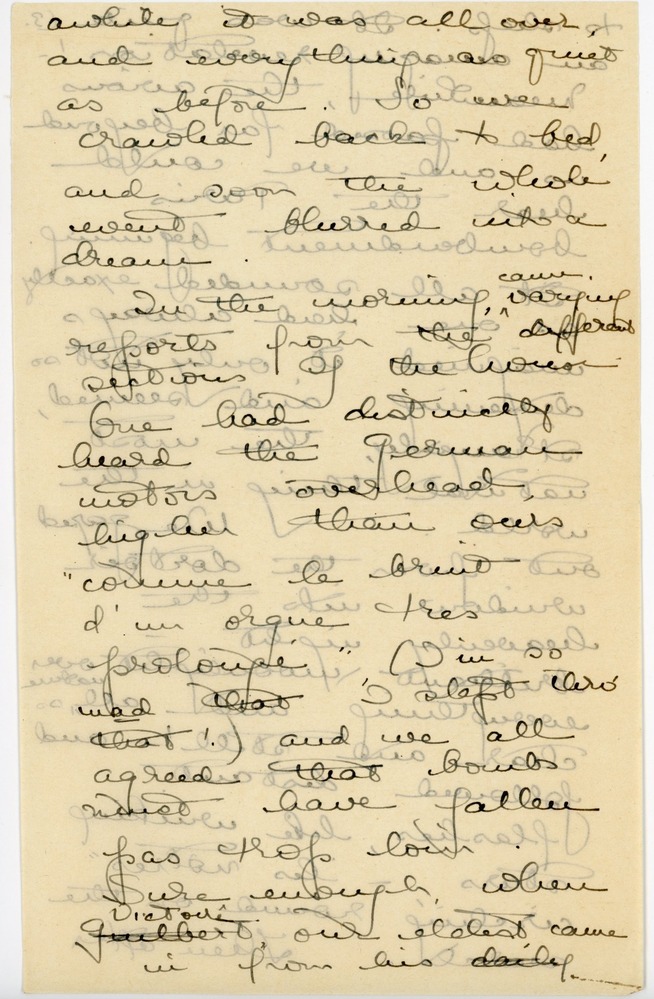 awhile it was all over,
and everything was quiet
as before. So we
crawled back to bed,
and soon the whole
event blurred into a
dream.
In the morning, came varying
reports from the different
sections of the house.
One had distinctly
heard the German
motors overhead,
higher than ours
"comme le bruit
d'un orgue tres
prolongé." (I'm so
mad that I slept thro'
that!) and we all
agreed that bombs
must have fallen
pas trop loin.
Sure enough, when
Victor
Guilbert, our eldest came
in from his daily